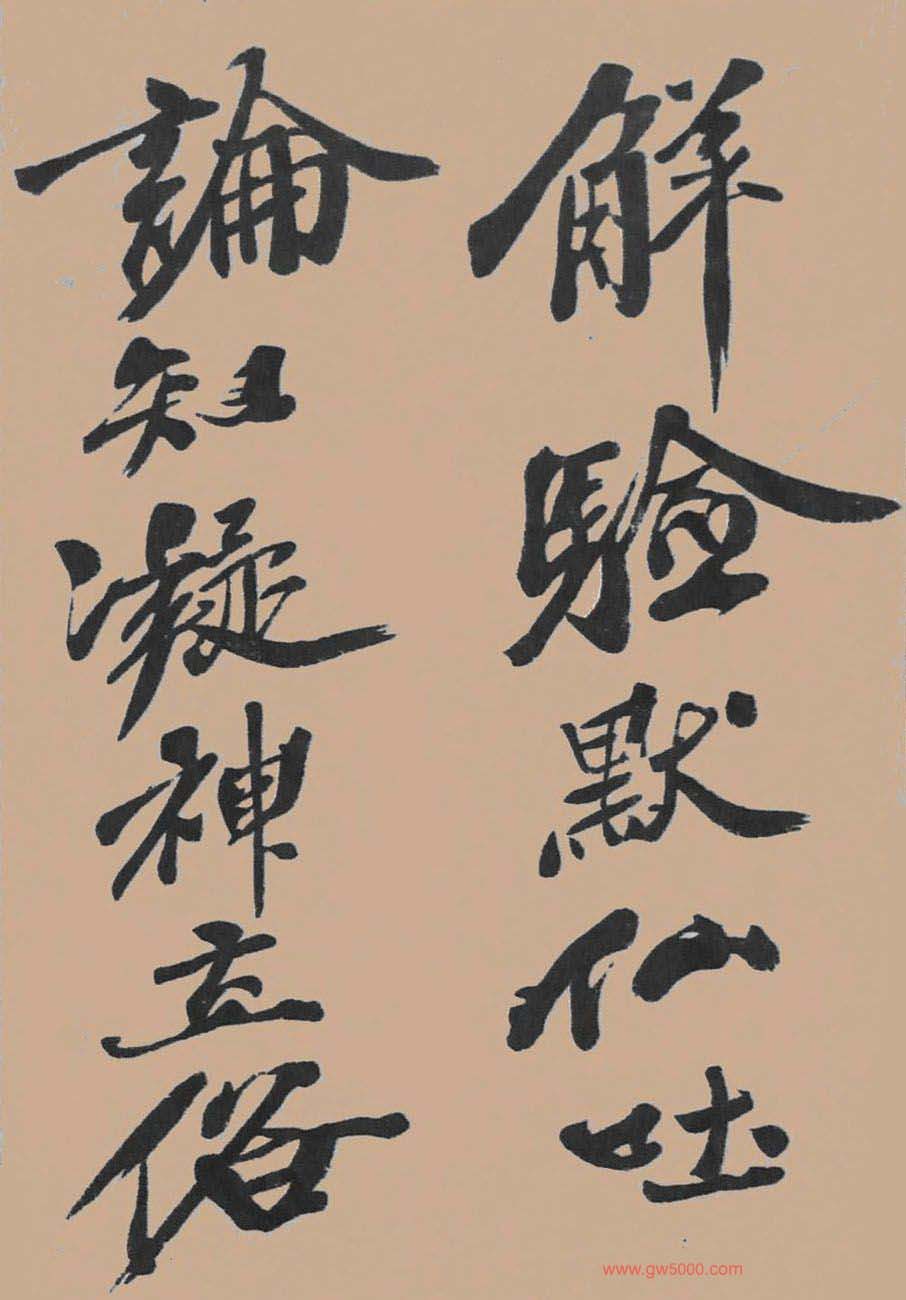 解驗默仙吐
論知凝神立俗
www.gw5000.com